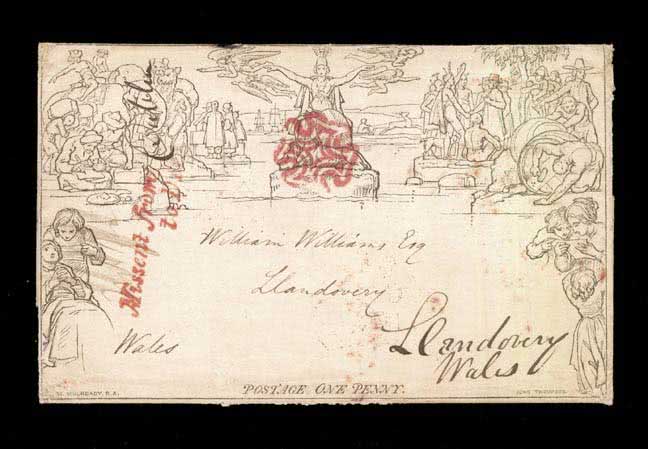 Missent from
to
William Williams Esq
Llandovery
Wales
Llandovery
Wales
POSTAGE ONE PENNY.
W. MULREADY. R.A.
JOHN THOMPSON